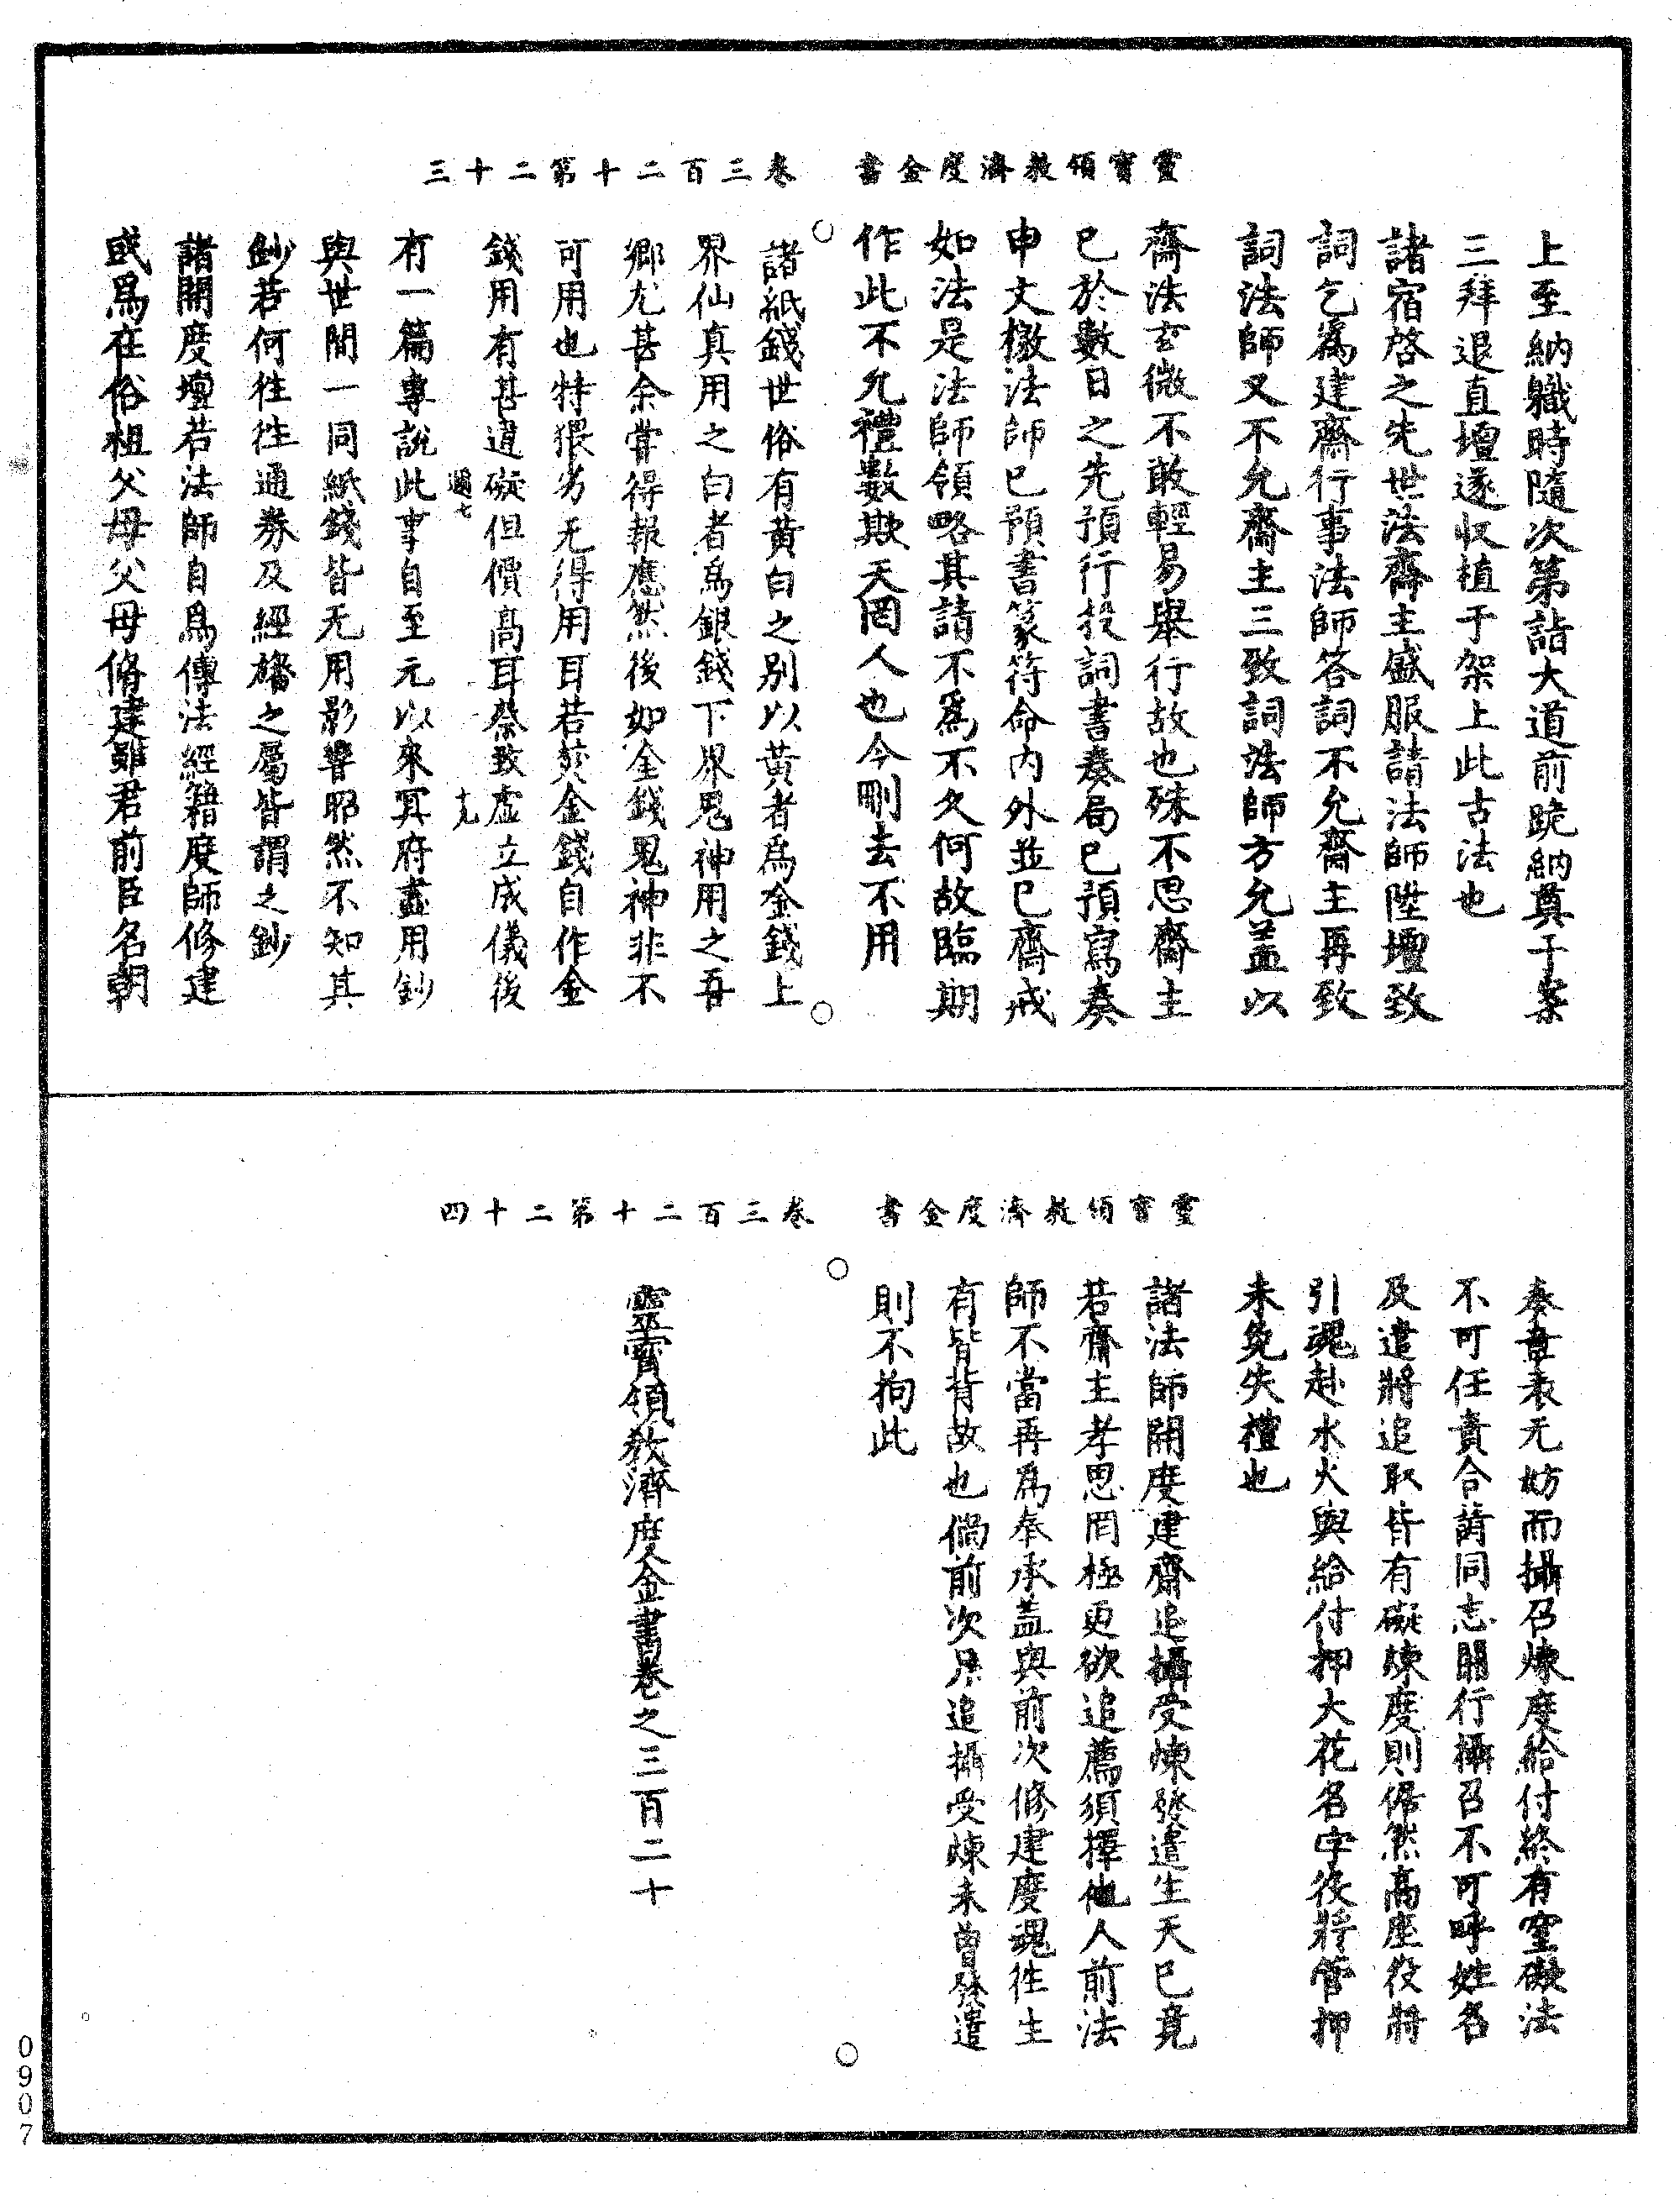 靈寶領教濟度金書　卷三百二十第二十三
上至納職時隨次第詣大道前跪納奠于案
三拜退直壇遂収植于架上此古法也
諸宿啓之先世法齋主盛服請法師陞壇致
詞乞爲建齋行事法師答詞不允齋主再致
詞法師又不允齋主三致詞法師方允盖以
齋法玄微不敢輕易舉行故也殊不思齋主
已於數日之先預行投詞書奏局已預寫奏
申文檄法師已預書篆符命内外並已齋戒
如法是法師領略其請不爲不久何故臨期
作此不允禮數欺天罔人也今刪去不用
諸紙錢世俗有黄白之别以黄者爲金錢上
界仙真用之白者爲銀錢下界鬼神用之吾
鄉尤甚余嘗得報應然後如金錢鬼神非不
可用也特猥劣无得用耳若焚金錢自作金
錢用有甚違礙但價高耳祭致虛立成儀後
有一篇專說此事自至元以來冥府盡用鈔
與世間一同紙錢皆无用影響昭然不知其
鈔若何徃徃通券及經旛之屬皆謂之鈔
諸開度壇若法師自爲傳法經籍度師修建
或爲在俗祖父母父母脩建雖君前臣名朝
靈寶領教濟度金書　卷三百二十第二十四
奏畫表无妨而攝召煉度給付終有窒礙法
不可任責合請同志關行攝召不可呼姓名
及遣將追取皆有礙煉度則儼然高座役將
引魂赴水火與給付押大花名字役將管押
未免失禮也
諸法師開度建齋追攝受煉發遣生天已竟
若齋主孝思罔極更欲追薦須擇他人前法
師不當再爲奉承盖與前次修建度魂徃生
有皆背故也倘前次只追攝受煉未曾發遣
則不拘此
靈寶領教濟度金書卷之三百二十
0907